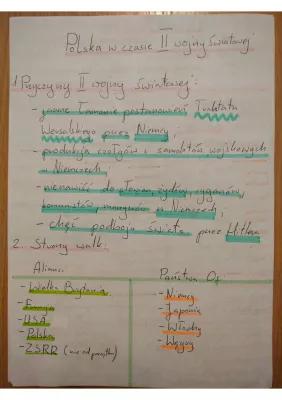 Polska w czasie II wojny światowej
1. Przyczyny II wojny światowej:
- jawne łamanie postanowień Traktatu
Wersalskiego przez Niemcy,
- produkcja czołgów i samolotów wojskowych
w Niemczech,
- nienawiść do Słowian, Żydów, cyganów,
komunistów, w Niemczech,
- chęć podboju świata przez Hitlera
2. Strony walki:
Alianci:
- Wielka Brytania
- Francja
- USA
- Polska
- ZSRR (nie od początku)
Państwa Osi:
- Niemcy
- Japonia
- Włochy
- Węgry